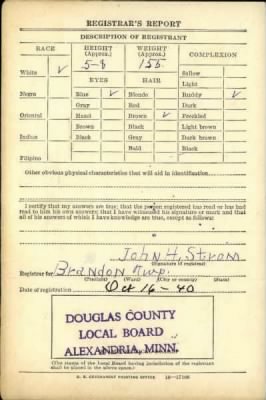 REGISTRAR'S REPORT
DESCRIPTION OF REGISTRANT
RACE HEIGHT (Approx.) WEIGHT (Approx.) COMPLEXION
5-8 155
White ✓ Sallow
EYES HAIR Light
Negro Blue ✓ Blonde Ruddy ✓
Gray Red Dark
Oriental Hazel Brown ✓ Freckled
Brown Black Light brown
Indian Black Gray Dark brown
Bald Black
Filipino
Other obvious physical characteristics that will aid in identification
I certify that my answers are true; that the person registered has read or has had
read to him his own answers; that I have witnessed his signature or mark and that
all of his answers of which I have knowledge are true, except as follows:
John H. Strom
(Signature of registrar)
Registrar for Brandon Twp.
(Precinct) (Ward) (City or county) (State)
Date of registration Oct 16-40
DOUGLAS COUNTY
LOCAL BOARD
ALEXANDRIA, MINN.
(The stamp of the Local Board having jurisdiction of the registrant
shall be placed in the above space.)
U. S. GOVERNMENT PRINTING OFFICE